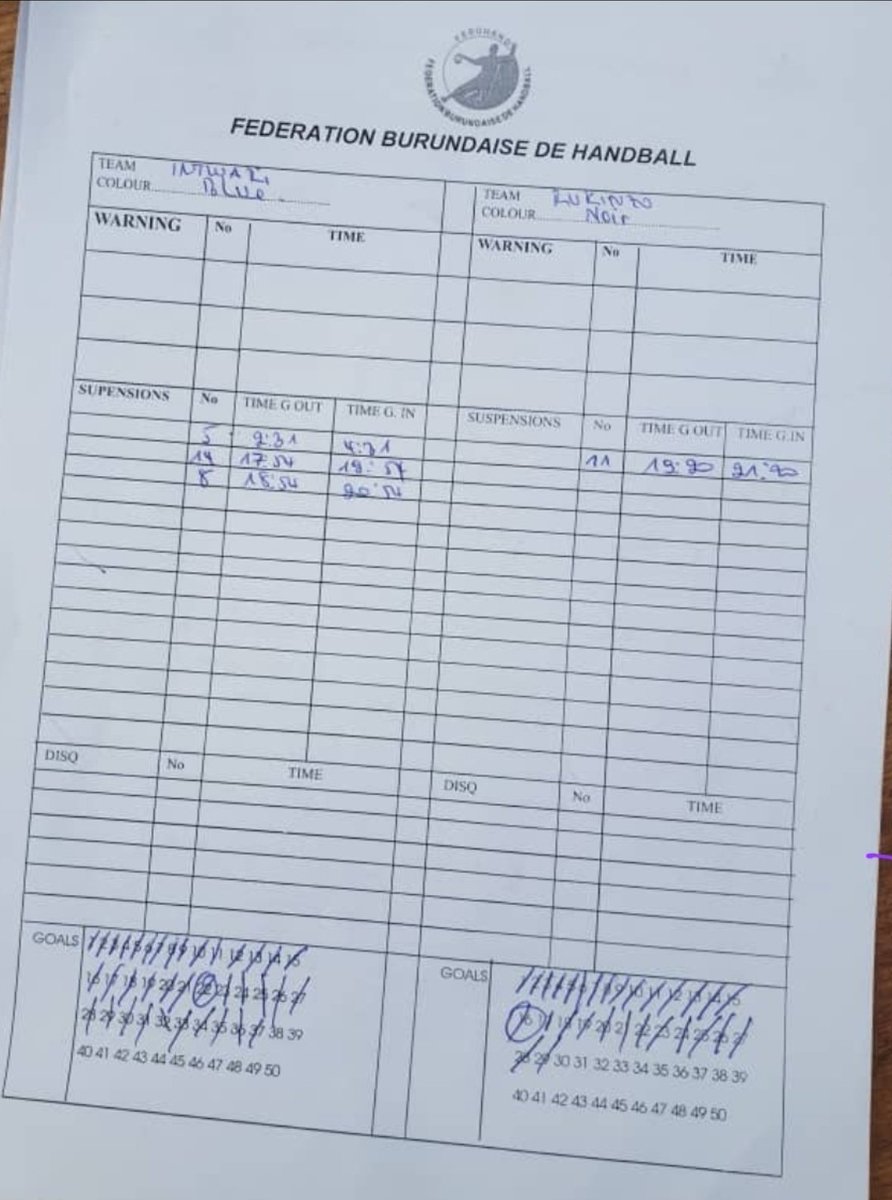 FEBUHAND
FEDERATION BURUNDAISE DE HANDBALL
FEDERATION BURUNDAISE DE HANDBALL
TEAM INTWARI
COLOUR Blue
TEAM RUKINZO
COLOUR Noir
WARNING No TIME
WARNING No TIME
SUPENSIONS No TIME G OUT TIME G. IN
SUSPENSIONS No TIME G OUT TIME G.IN
5 2:31 4:31
14 17:54 19:54
11 19:20 21:20
8 18:54 20:54
DISQ No TIME
DISQ No TIME
GOALS 1 2 3 4 5 6 7 8 9 10 11 12 13 14 15
16 17 18 19 20 21 22 23 24 25 26 27
28 29 30 31 32 33 34 35 36 37 38 39
40 41 42 43 44 45 46 47 48 49 50
GOALS 1 2 3 4 5 6 7 8 9 10 11 12 13 14 15
16 17 18 19 20 21 22 23 24 25 26 27
28 29 30 31 32 33 34 35 36 37 38 39
40 41 42 43 44 45 46 47 48 49 50